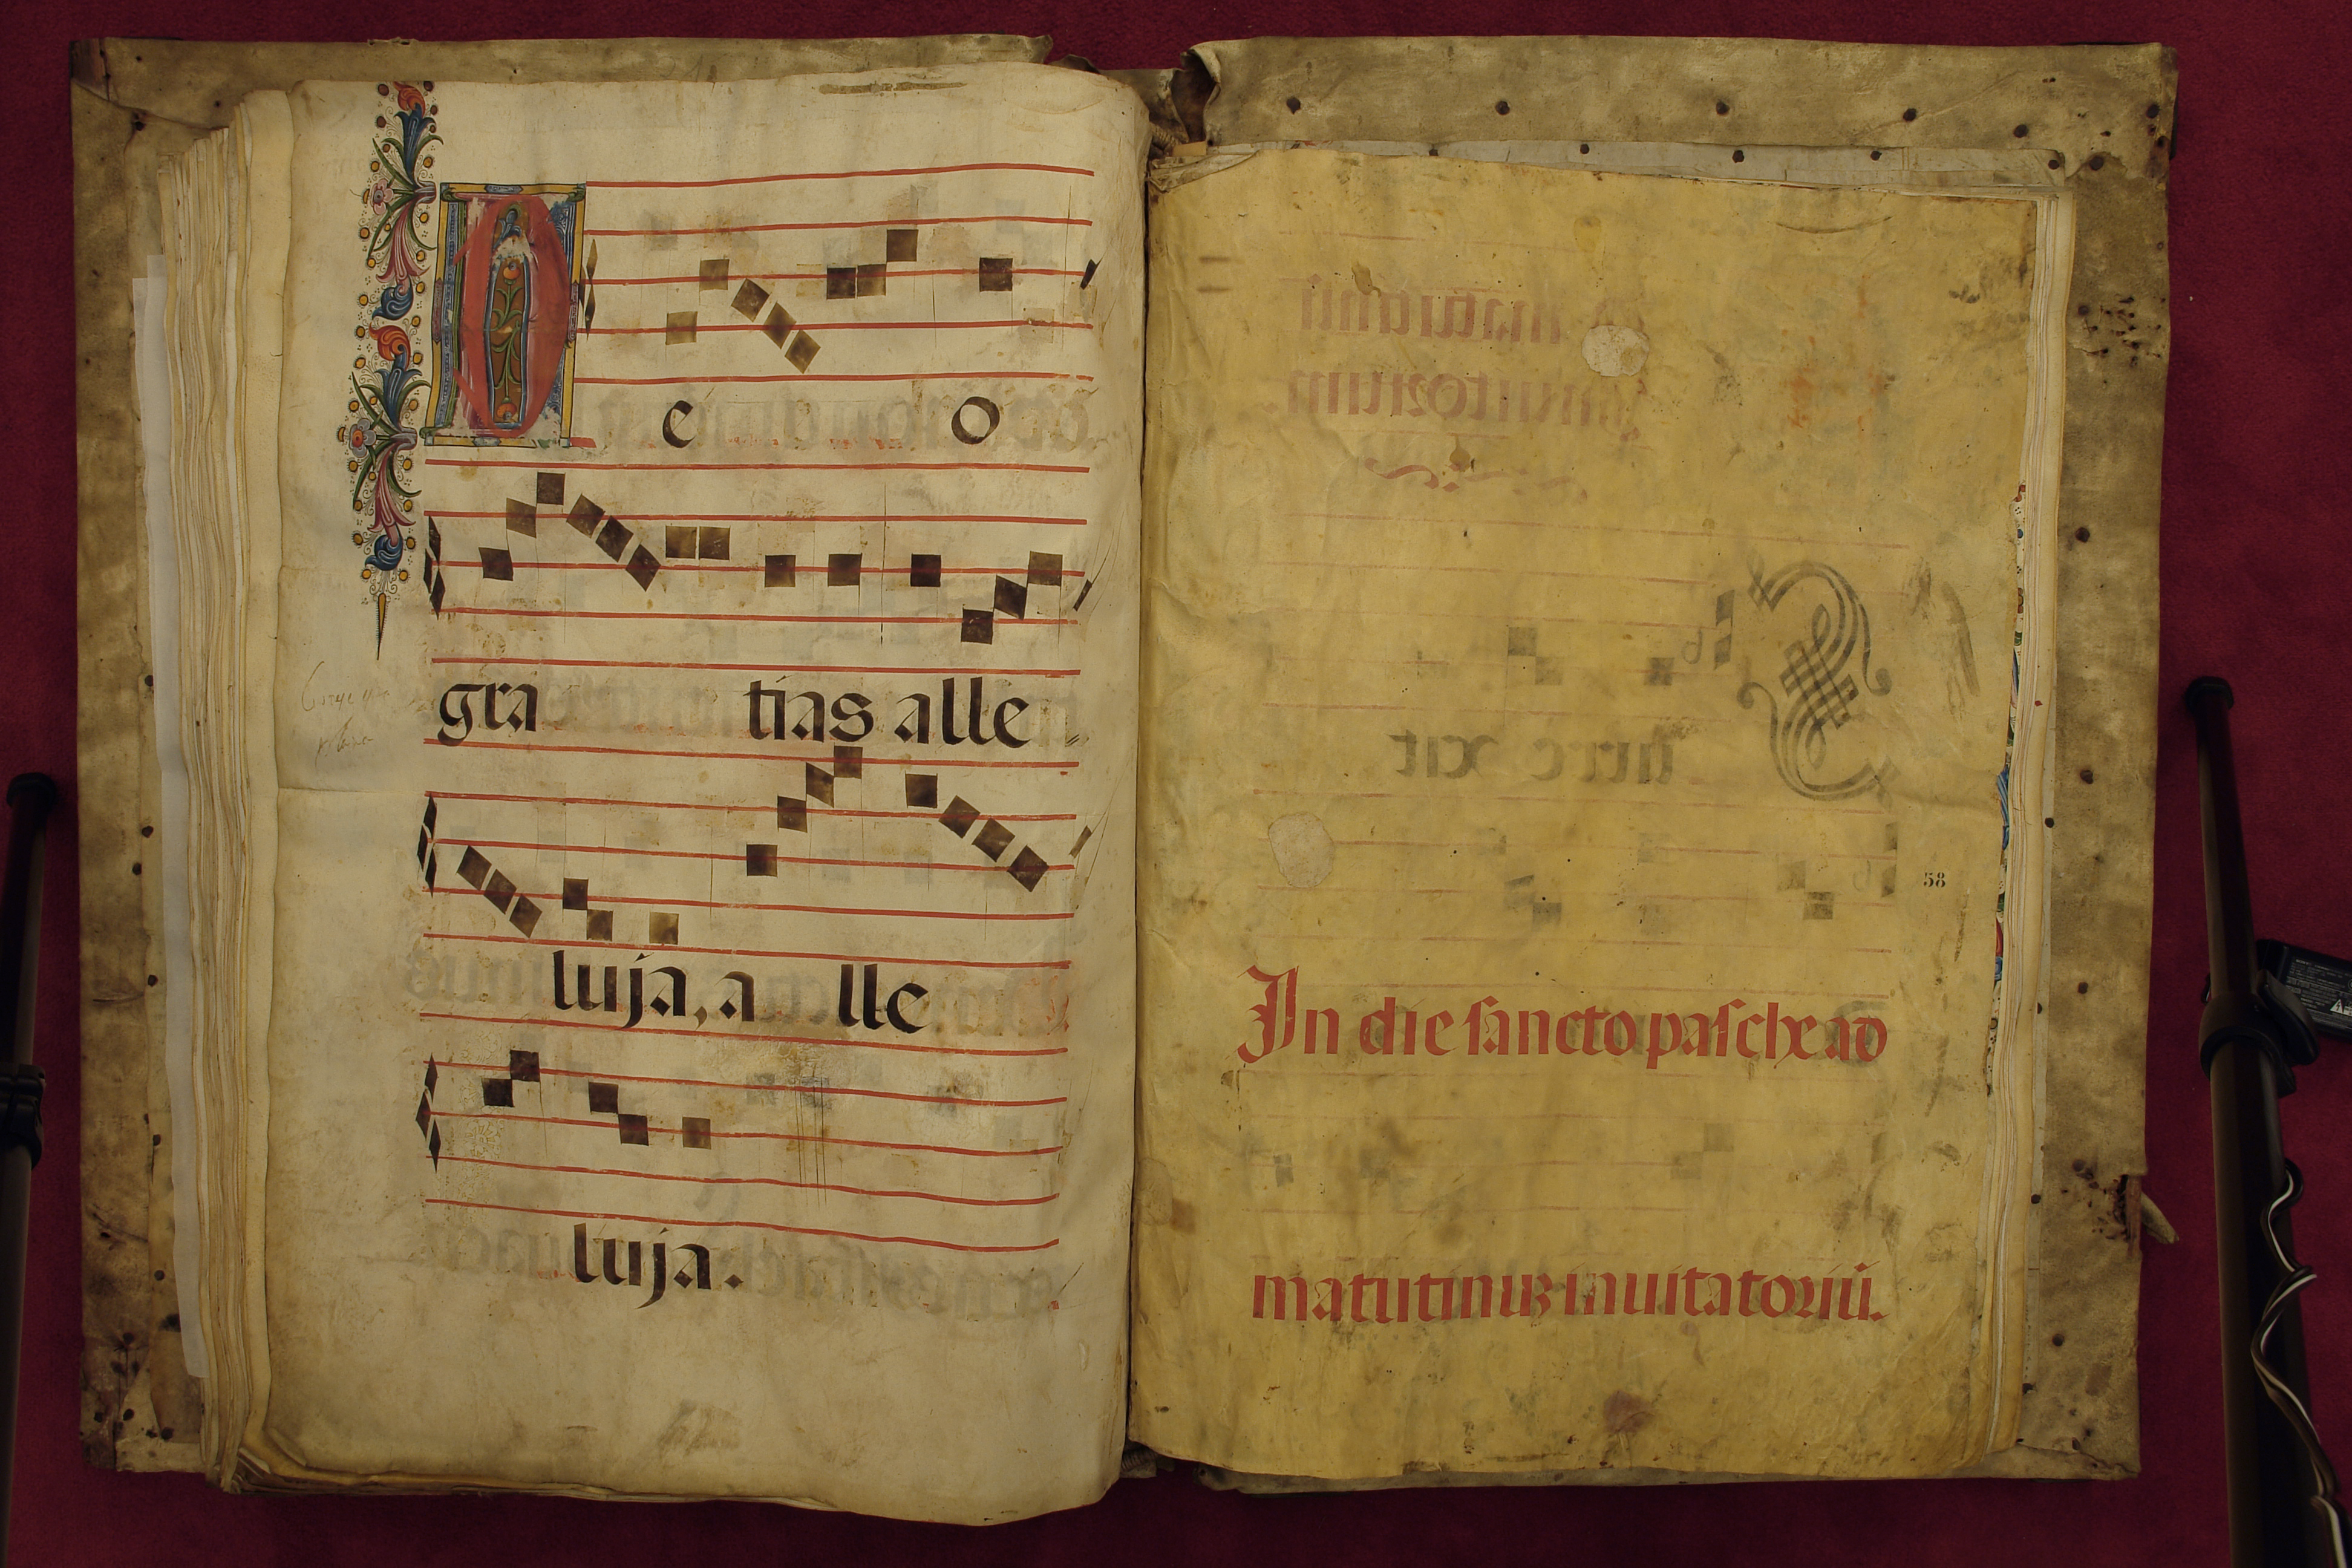 D e o
gra tias alle
luja, a lle
luja.
58
In die sancto pasche ad
matutinis inuitatoriū.